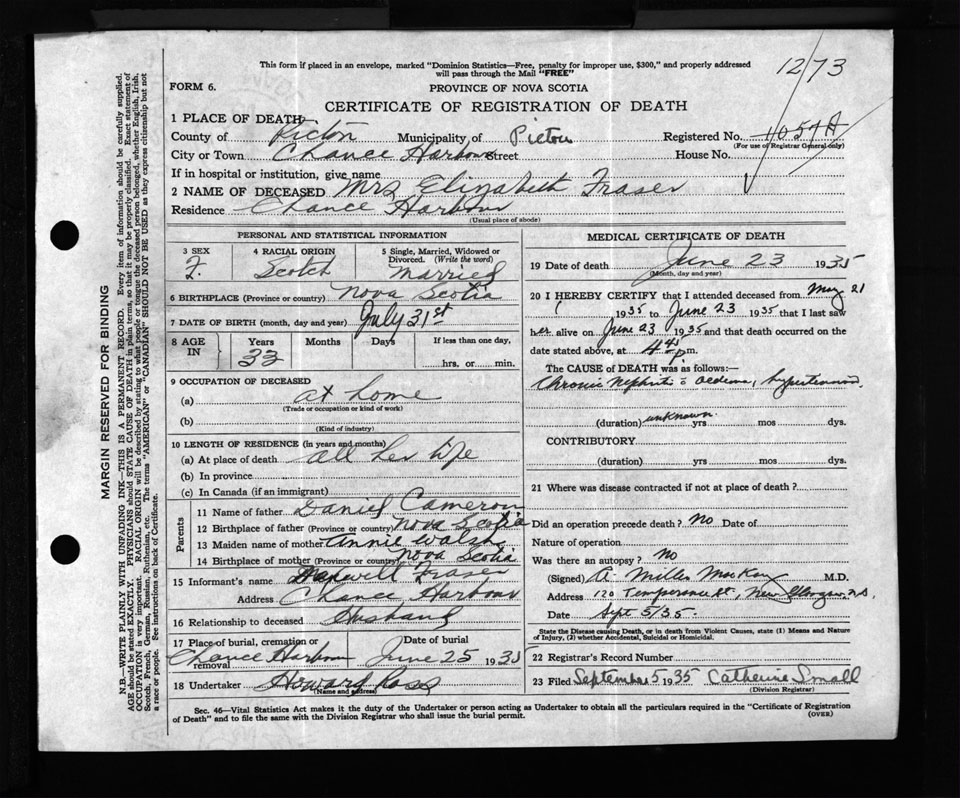 This form if placed in an envelope, marked "Dominion Statistics—Free, penalty for improper use, $300," and properly addressed
will pass through the Mail "FREE"
1273
FORM 6.
PROVINCE OF NOVA SCOTIA
CERTIFICATE OF REGISTRATION OF DEATH
1 PLACE OF DEATH
County of Pictou Municipality of Pictou Registered No. 1057A
(For use of Registrar General only)
City or Town Chance Harbour Street House No.
If in hospital or institution, give name
2 NAME OF DECEASED Mrs Elizabeth Fraser
Residence Chance Harbour
(Usual place of abode)
PERSONAL AND STATISTICAL INFORMATION
3 SEX 4 RACIAL ORIGIN 5 Single, Married, Widowed or
Divorced. (Write the word)
F. Scotch Married
6 BIRTHPLACE (Province or country) Nova Scotia
7 DATE OF BIRTH (month, day and year) July 31st
8 AGE IN Years Months Days If less than one day,
33 hrs. or min.
9 OCCUPATION OF DECEASED
(a) at home
(Trade or occupation or kind of work)
(b)
(Kind of industry)
10 LENGTH OF RESIDENCE (in years and months)
(a) At place of death all her life
(b) In province
(c) In Canada (if an immigrant)
Parents
11 Name of father Daniel Cameron
12 Birthplace of father (Province or country) Nova Scotia
13 Maiden name of mother Annie Walsh
14 Birthplace of mother (Province or country) Nova Scotia
15 Informant's name Maxwell Fraser
Address Chance Harbour
16 Relationship to deceased Husband
17 Place of burial, cremation or removal Date of burial
Chance Harbour June 25 1935
18 Undertaker Howard Ross
(Name and address)
MEDICAL CERTIFICATE OF DEATH
19 Date of death June 23 1935
(Month, day and year)
20 I HEREBY CERTIFY that I attended deceased from May 21
1935 to June 23 1935 that I last saw
her alive on June 23 1935 and that death occurred on
date stated above, at 4 45 p.m.
The CAUSE of DEATH was as follows:—
Chronic Nephritis c oedema, hypertension
(duration) unknown yrs mos dys.
CONTRIBUTORY
(duration) yrs mos dys.
21 Where was disease contracted if not at place of death?
Did an operation precede death? No Date of
Nature of operation
Was there an autopsy? No
(Signed) A. Miller MacKay M.D.
Address 120 Temperance St, New Glasgow N.S.
Date Sept 5/35.
State the Disease causing Death, or in death from Violent Causes, state (1) Means and Nature
of Injury, (2) whether Accidental, Suicidal or Homicidal.
22 Registrar's Record Number
23 Filed September 5 1935 Catherine Small
(Division Registrar)
Sec. 46—Vital Statistics Act makes it the duty of the Undertaker or person acting as Undertaker to obtain all the particulars required in the "Certificate of Registration
of Death" and to file the same with the Division Registrar who shall issue the burial permit. (OVER)
MARGIN RESERVED FOR BINDING
N.B.—WRITE PLAINLY WITH UNFADING INK—THIS IS A PERMANENT RECORD. Every item of information should be carefully supplied.
AGE should be stated EXACTLY. PHYSICIANS should STATE CAUSE OF DEATH in plain terms, so that it may be properly classified. Exact statement of
OCCUPATION is very important. RACIAL ORIGIN will be described by stating to what people or tongue the deceased person belonged, whether English, Irish,
Scotch, French, German, Russian, Ruthenian, etc. The terms "AMERICAN" or "CANADIAN" SHOULD NOT BE USED as they express citizenship but not
a race or people. See instructions on back of Certificate.